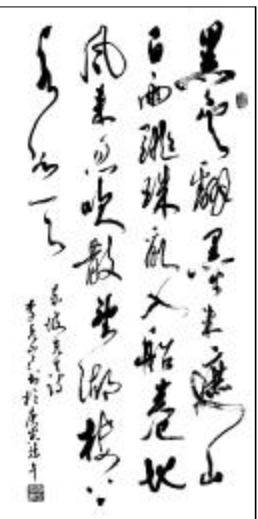 黑雲翻墨未遮山
白雨跳珠亂入船卷地
風來忽吹散望湖樓下
水如天
東坡先生詩